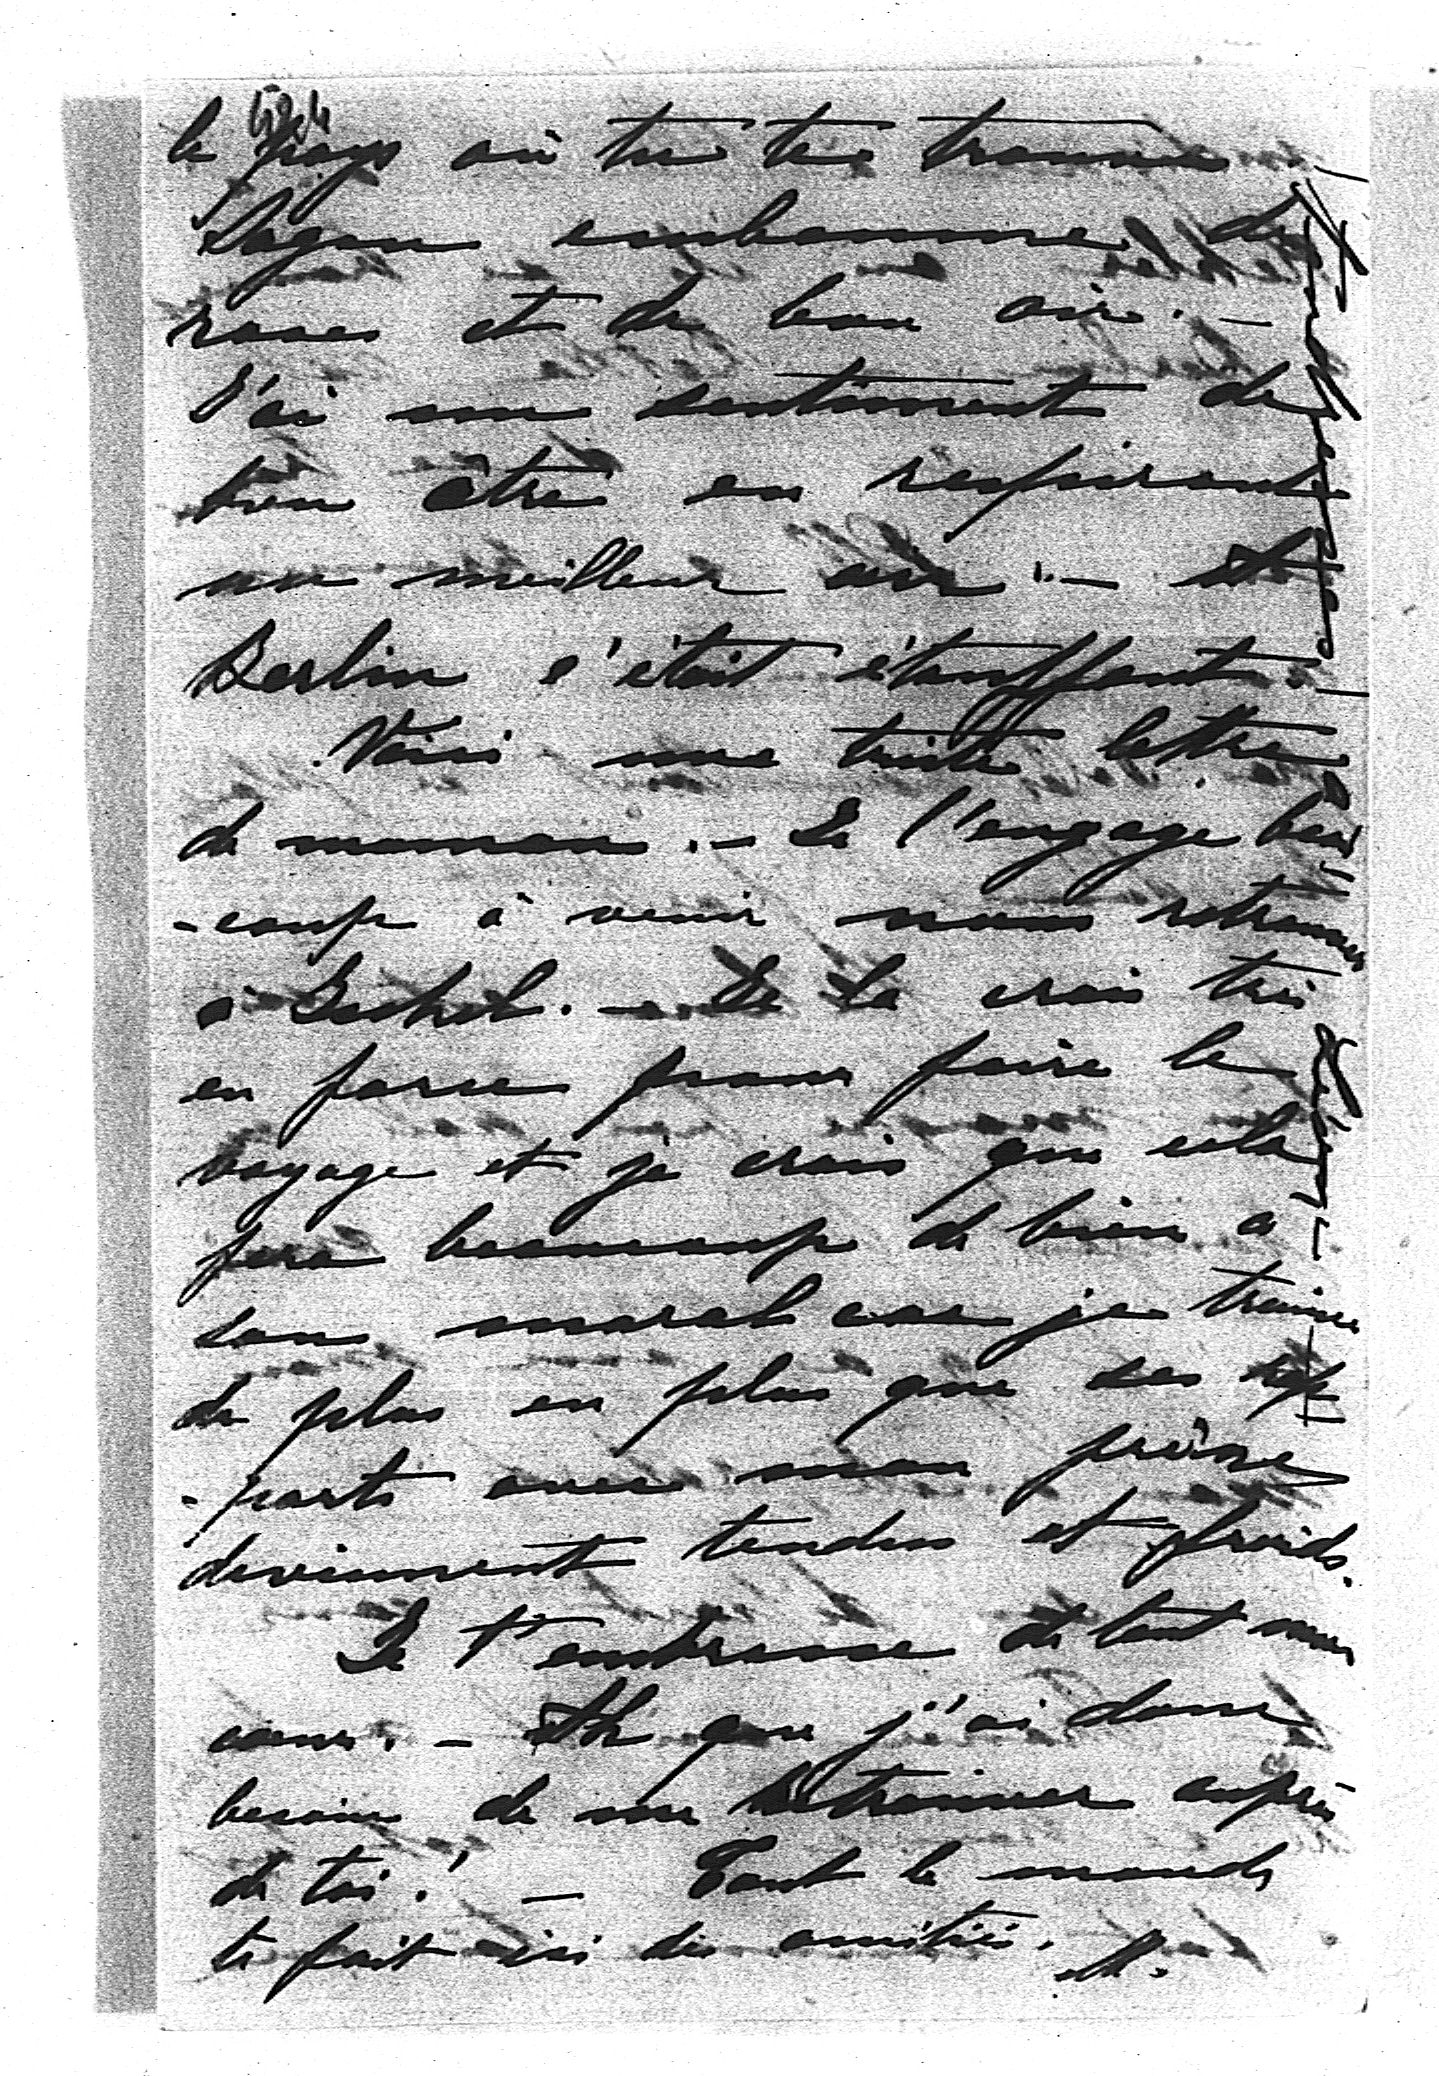 le pays où tu te trouves
Sagan embaume de
roses et de bon air. —
J'ai un sentiment de
bien être en respirant
un meilleur air. — A
Berlin c'était étouffant.
Voici une triste lettre
de maman. — Je l'engage beau
-coup à venir nous retrouver
à . — Je la crois très
en force pour faire le
voyage et je crois que cela
fera beaucoup de bien à
son moral car je trouve
de plus en plus que ses rap
-ports avec mon frère
deviennent tendus et froids.
Je t'embrasse de tout mon
cœur. — Ah que j'ai donc
besoin de me retrouver auprès
de toi! — Tout le monde
te fait ici des amitiés. M.